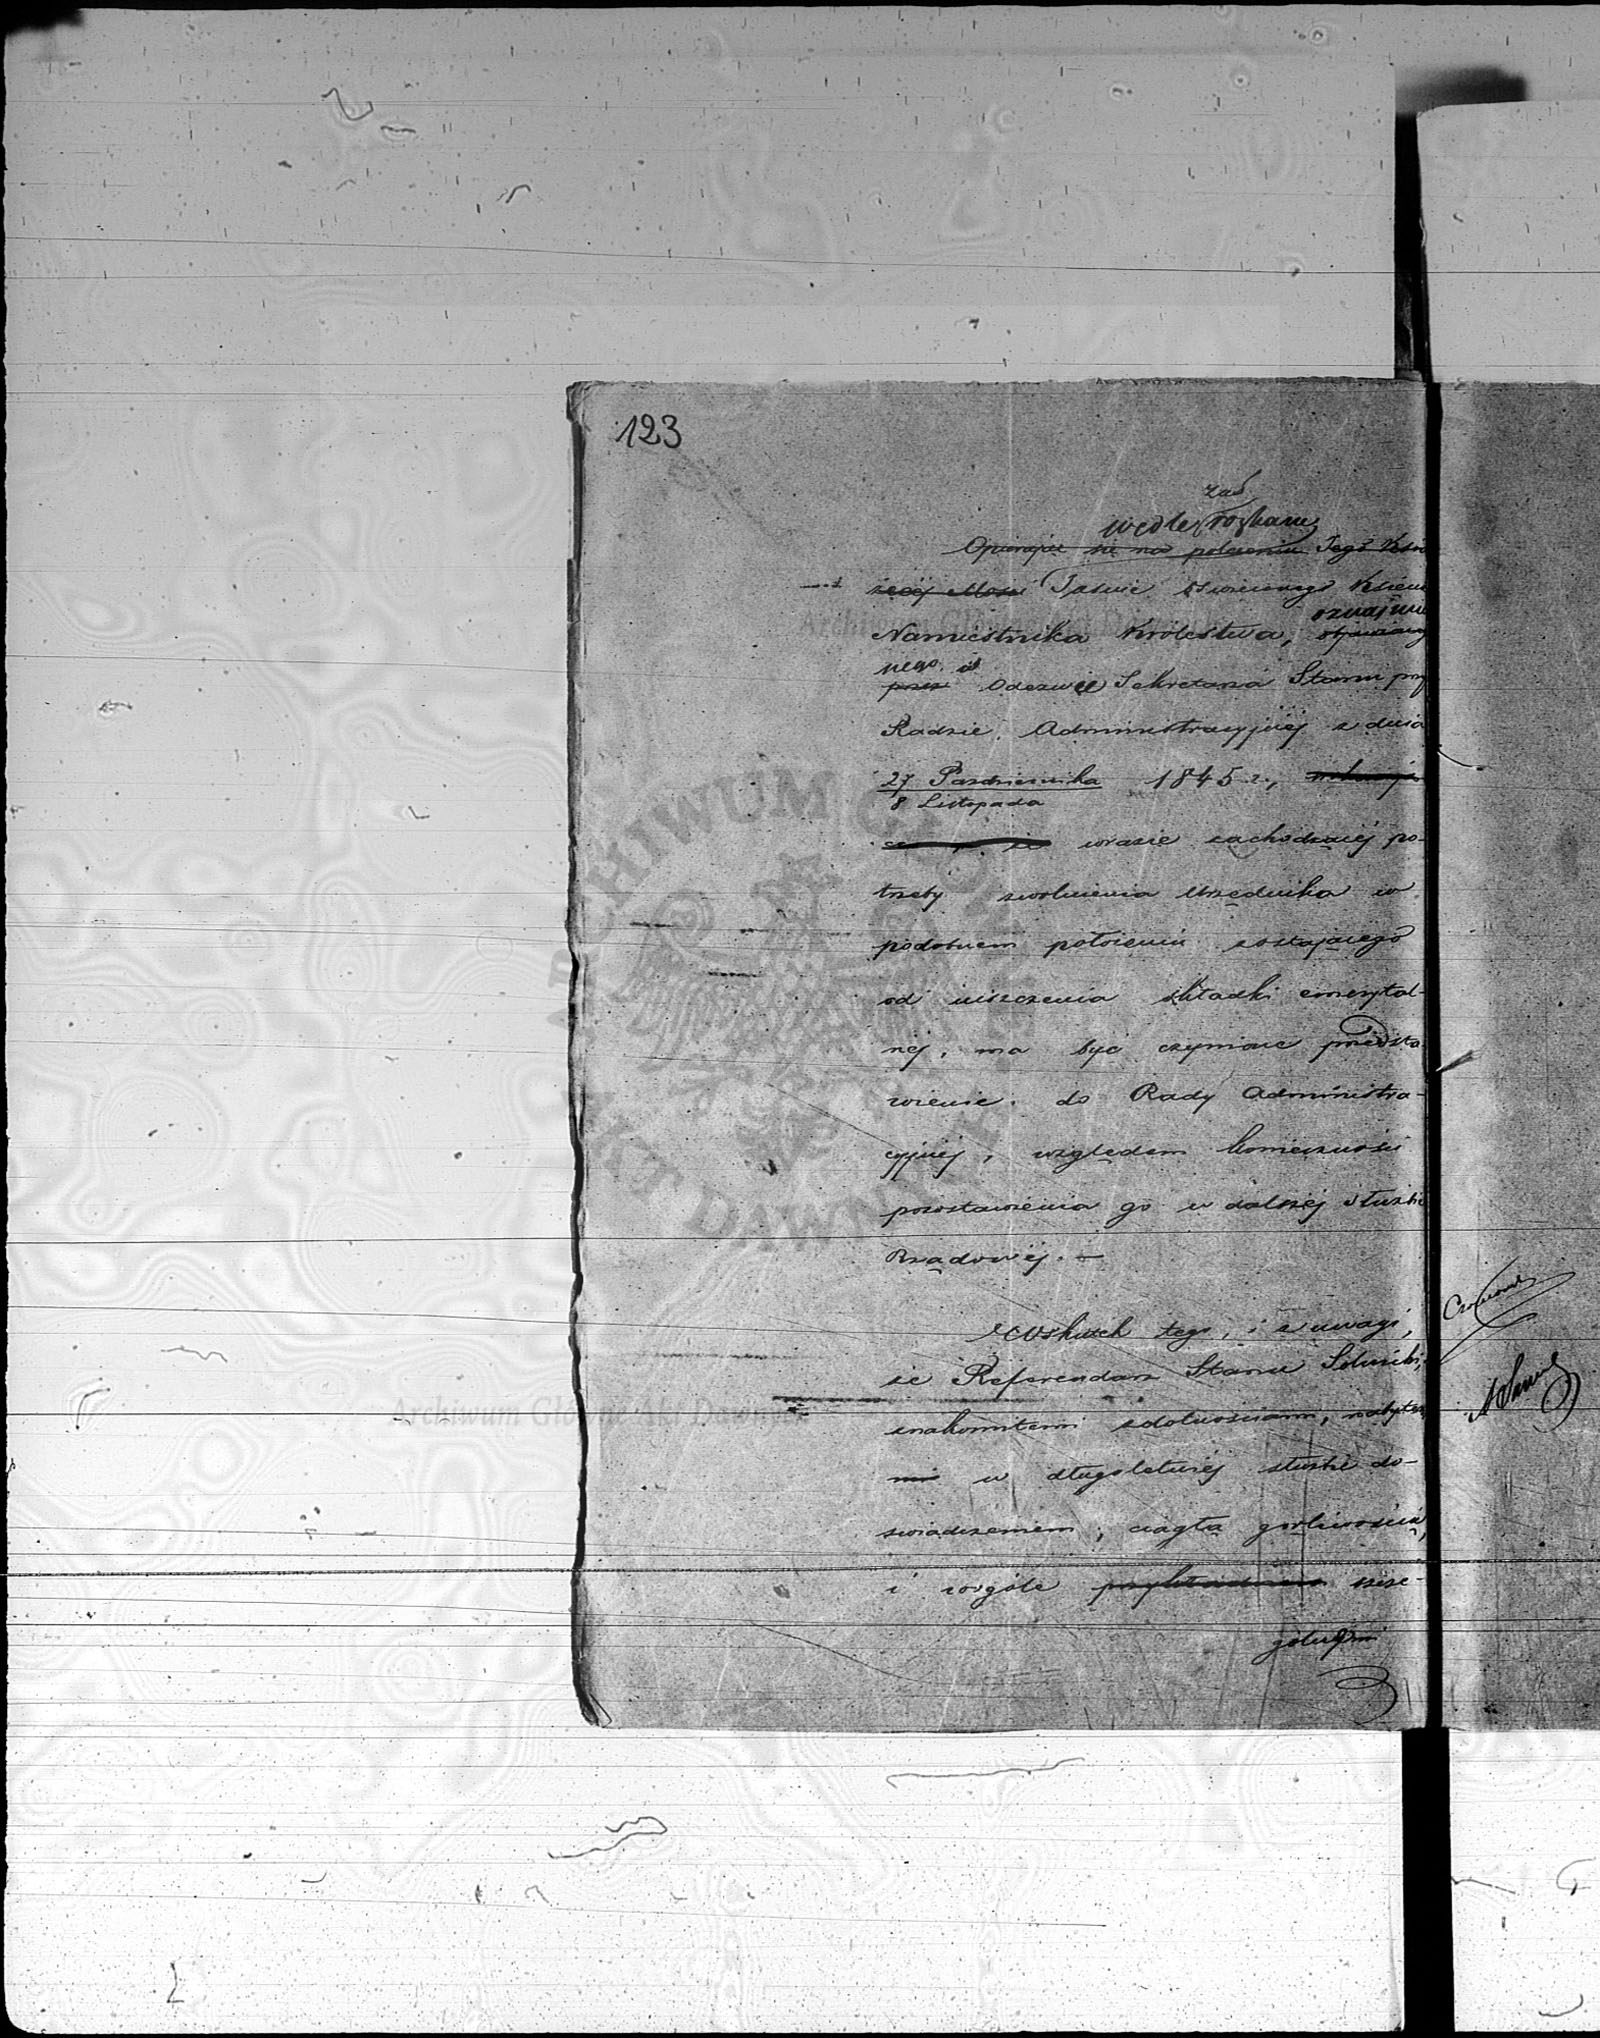 123
zaś
wedle rozkazu
Opierając się na poleceniu Jego Ksią
żęcej Mości Jaśnie Oświeconego Księcia
oznajmio
Namiestnika Królestwa,
nego w
przez Odezwę Sekretarza Stanu przy
Radzie Administracyjnéj z dnia
27 Października 1845 r.,
8 Listopada
wrazie zachodzącéj po-
trzeby zwolnienia Urzędnika w
podobnem położeniu zostającego
od uiszczenia składki emerytal-
néj, ma być czynione przedsta
wienie do Rady Administra-
cyjnéj, względem konieczności
pozostawienia go w dalszéj służbie
Rządowéj. —
Wskutek tego, i z uwagi,
że Referendarz Stanu
znakomitemi zdolnościami, nabytem
w długoletniéj służbie do-
świadczeniem, ciągłą gorliwością,
i wogóle przykładnem szcze-
gólnymi
Archiwum Główne Akt Dawnych
ARCHIWUM GŁÓWNE AKT DAWNYCH
Archiwum Główne Akt Dawnych